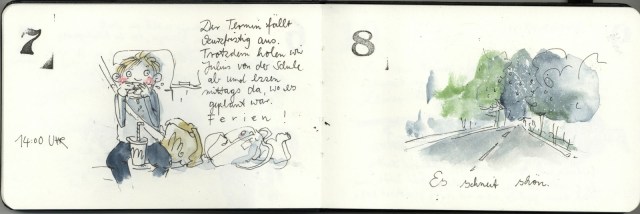 7
Der Termin fällt
kurzfristig aus.
Trotzdem holen wir
Julius von der Schule
ab und essen
mittags da, wo es
geplant war.
Ferien!
14:00 Uhr
m
m
8
Es schneit schon.